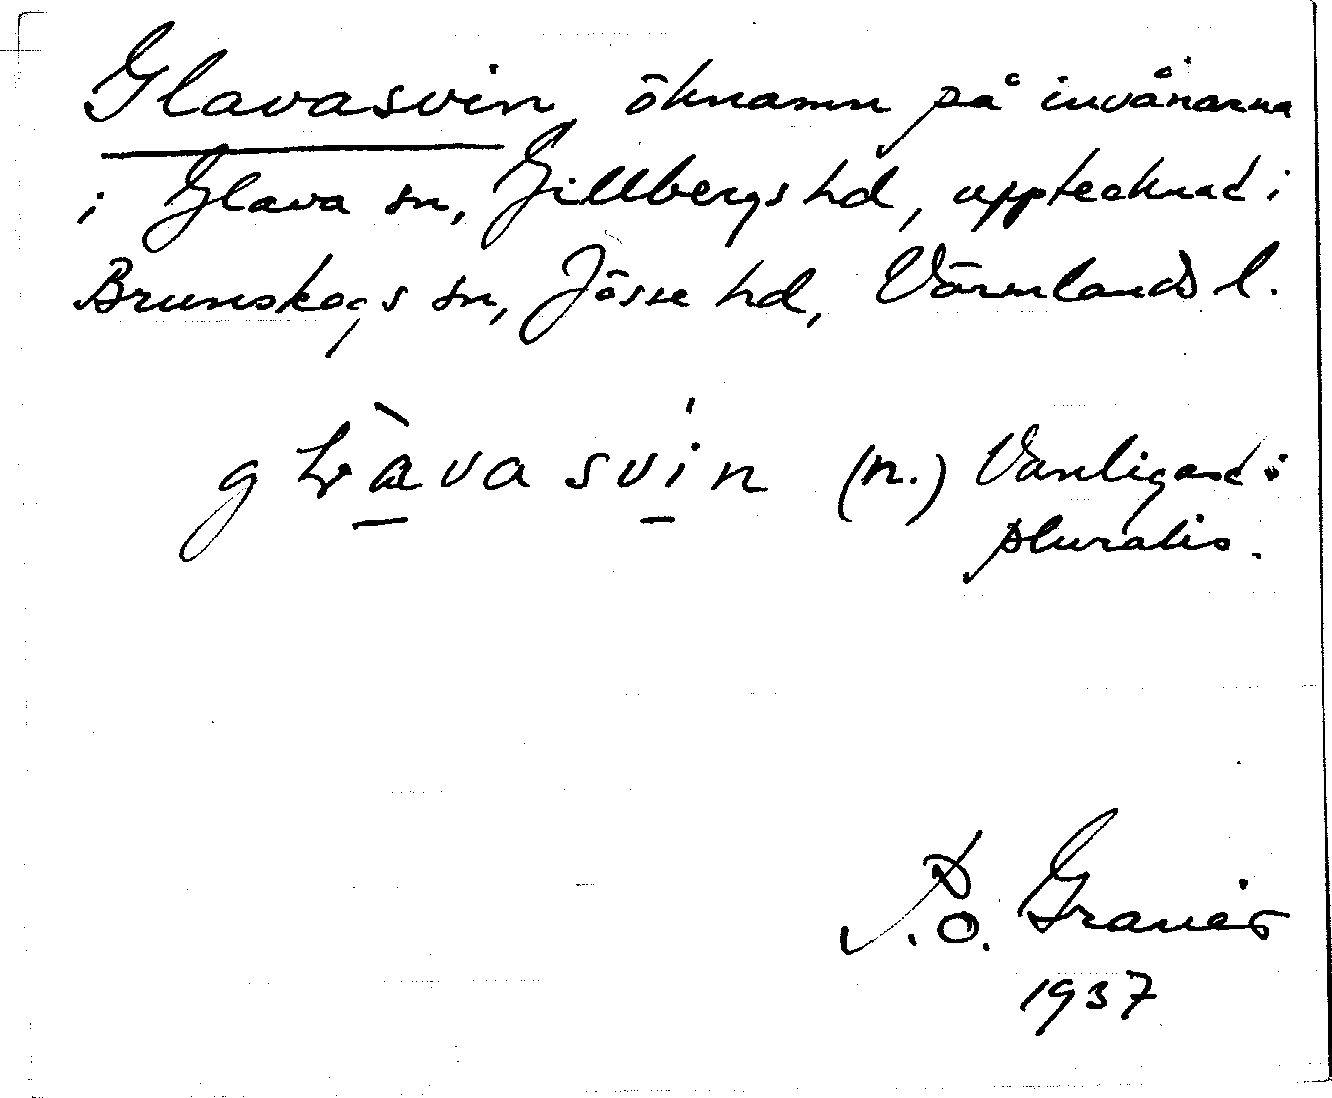 Glavasvin, öknamn på invånarna
i Glava sn, Gillbergs hd, upptecknat i
Brunskogs sn, Jösse hd, Värmlands l.
gɫàvasvin (n.) Vanligast i
pluralis.
P. O. Granér
1937